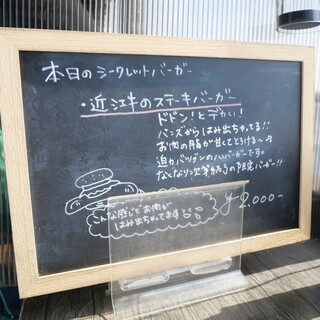 本日のシークレットバーガー
・近江牛のステーキバーガー
ドドン!とデカい!
バンズからはみ出ちゃってる!!
お肉の脂が甘くてとろける〜
迫力バツグンのハンバーガーです。
なくなり次第終了の限定バーガー!!
こんな感じでお肉が
はみ出ちゃってます
¥2,000-